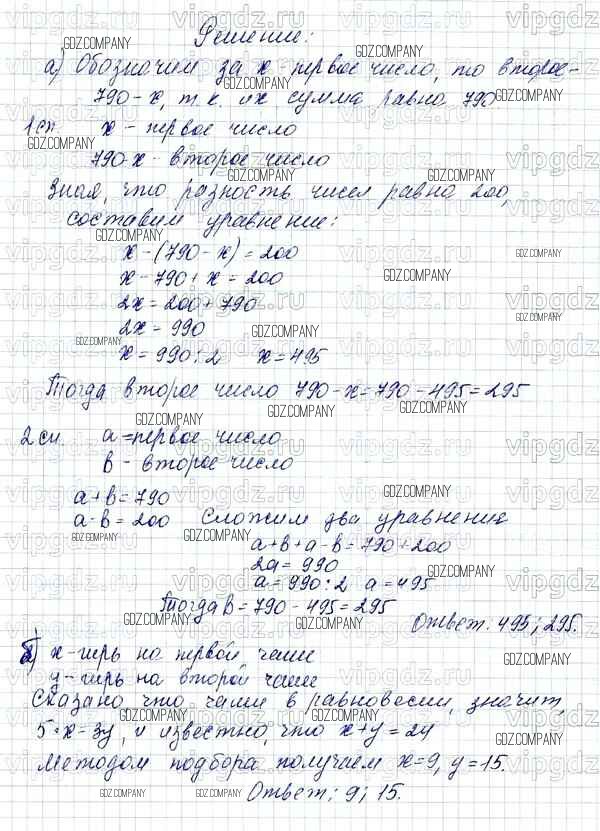 Решение:
а) Обозначим за x - первое число, то второе -
790-x, т.к. их сумма равна 790
1 сп. x - первое число
790-x - второе число
Зная, что разность чисел равна 200,
составим уравнение:
x-(790-x)=200
x-790+x=200
2x=200+790
2x=990
x=990:2 x=495
Тогда второе число 790-x=790-495=295
2 сп. a=первое число
в - второе число
a+в=790
a-в=200 Сложим два уравнения
a+в+a-в=790+200
2a=990
a=990:2 a=495
Тогда в=790-495=295
Ответ: 495; 295.
б) x-гирь на первой чаше
y-гирь на второй чаше
Сказано что чаши в равновесии, значит,
5·x=3y, и известно, что x+y=24
Методом подбора получаем x=9, y=15.
Ответ: 9; 15.